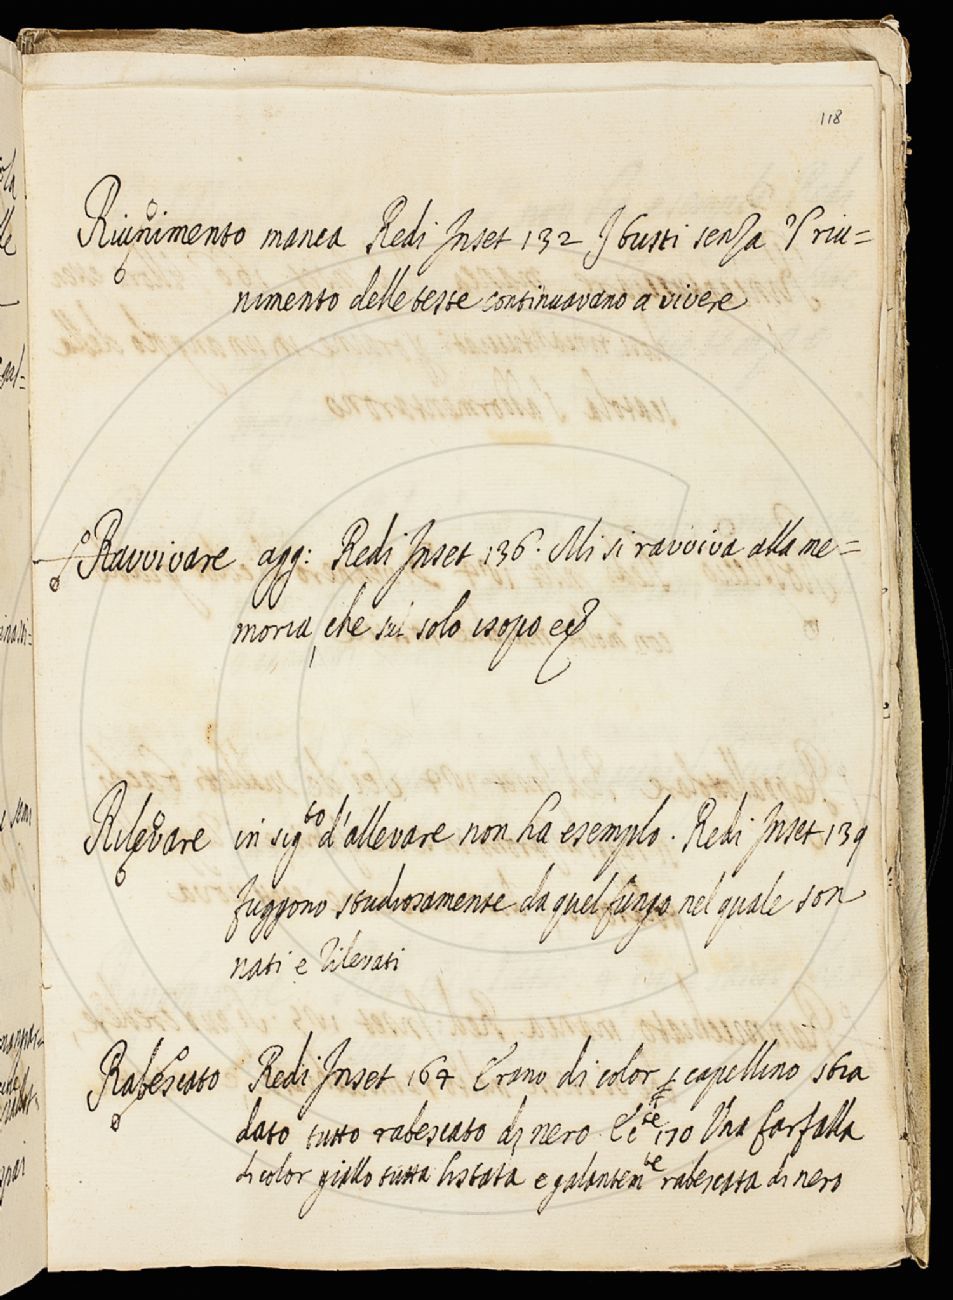 118
Riunimento manca Redi Inset 132 I busti senza 'l riu=
nimento delle teste continuavano a vivere
Ravvivare agg: Redi Inset 136. Mi si ravviva alla me=
moria, che sul solo isopo
Rilevare in sig.to d'allevare non ha esemplo. Redi Inset 139
fuggono studiosamente da quel fungo nel quale son
nati e rilevati
Rabescato Redi Inset 164 Erano di color capellino sbia
dato tutto rabescato di nero 170 Una farfalla
di color giallo tutta listata e galantem.te rabescata di nero